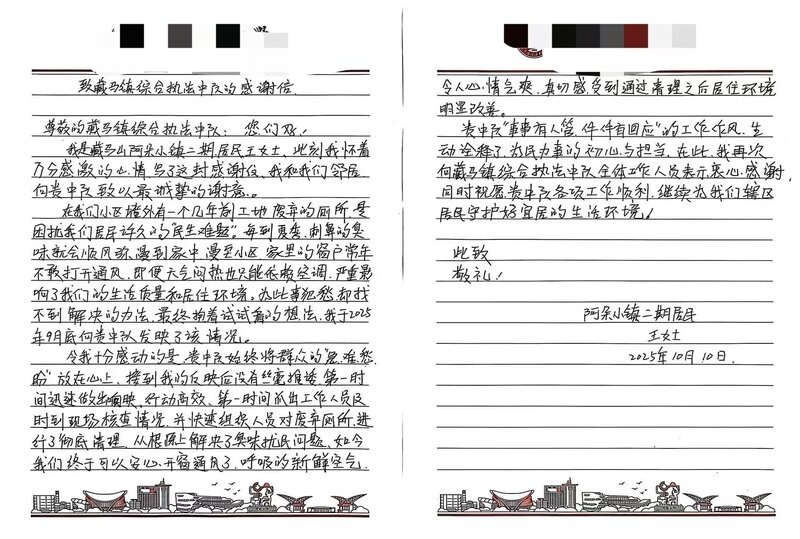 致藏马镇综合执法中队的感谢信
尊敬的藏马镇综合执法中队：您们好！
我是藏马山阿朵小镇二期居民王女士，此刻我怀着
万分感激的心情写了这封感谢信，我和我们邻居
向贵中队致以最诚挚的谢意。
在我们小区墙外有一个几年前工地废弃的厕所，是
困扰我们居民许久的民生难题”。每到夏季，刺鼻的臭
味就会顺风弥漫到家中漫至小区，家里的窗户常年
不敢打开通风，即便天气闷热也只能依赖空调，严重影
响了我们的生活质量和居住环境。为此事犯愁，却找
不到解决的办法，最终抱着试试看的想法，我于2025
年9月底向贵中队反映了该情况。
令我十分感动的是，贵中队始终将群众的“急、难、愁、
盼”放在心上，接到我的反映后没有丝毫推诿，第一时
间迅速做出响映，行动高效，第一时间派出工作人员及
时到现场核查情况，并快速组织人员对废弃厕所进
行了彻底清理，从根源上解决了臭味扰民问题，如今
我们终于可以安心开窗通风了，呼吸的新鲜空气，
令人心情气爽，真切感受到通过清理之后居住环境
明显改善。
贵中队“事事有人管，件件有回应”的工作作风，生
动诠释了为民办事的初心与担当，在此，我再次
向藏马镇综合执法中队全体工作人员表示衷心感谢，
同时祝愿贵中队各项工作顺利，继续为我们辖区
居民守护好宜居的生活环境！
此致
敬礼！
阿朵小镇二期居民
王女士
2025年10月10日.